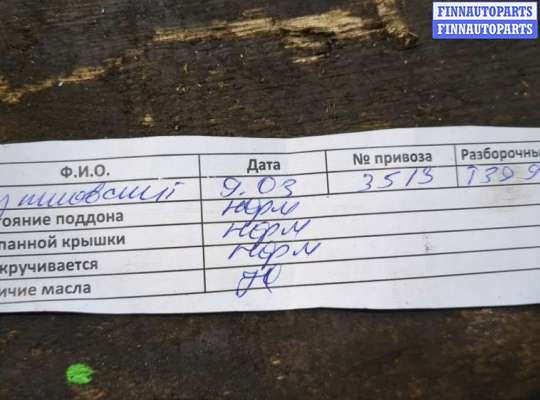 FINNAUTOPARTS
FINNAUTOPARTS
Ф.И.О. Дата № привоза Разборочны
9.03 3513 1399
тояние поддона норм
панной крышки норм
кручивается норм
ичие масла